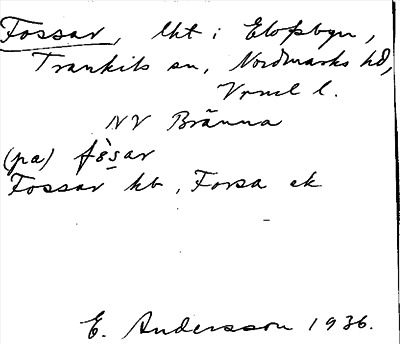 Fossar, lht i Elofsbyn,
Trankils sn, Nordmarks hd,
Vrml l.
NV Bränna
(pa) fòsar
Fossar kb, Forsa ek
E. Andersson 1936.